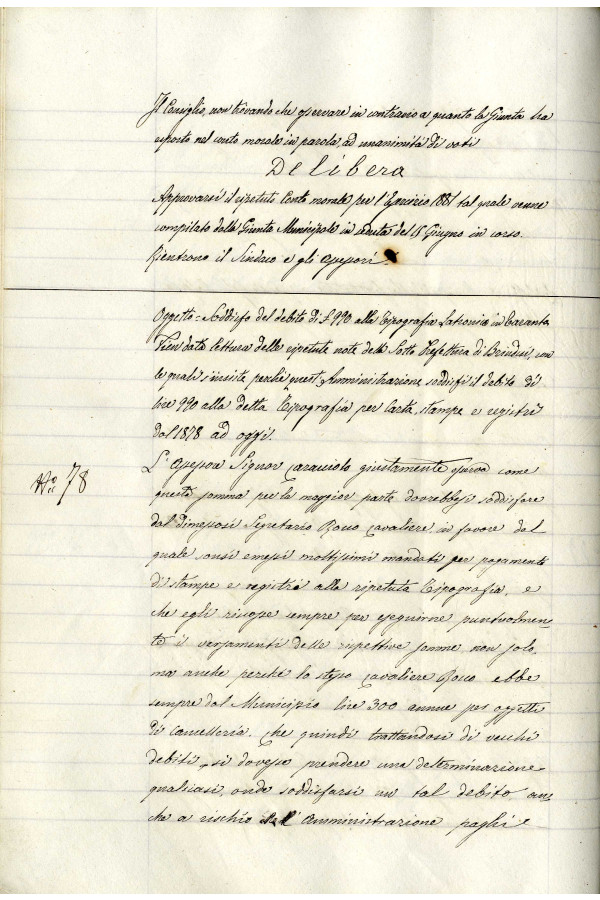 Il Consiglio, non trovando che osservare in contrario a quanto la Giunta ha
esposto nel conto morale in parola, ad unanimità di voti
Delibera
Approvarsi il ripetuto Conto morale per l'Esercizio 1881 tal quale venne
compilato dalla Giunta Municipale in seduta del 15 Giugno in corso.
Rientrono il Sindaco e gli Assessori.
Oggetto = Soddisfo del debito di £ 990 alla Tipografia Latronico in Taranto
Vien data lettura delle ripetute note della Sotto Prefettura di Brindisi, con
le quali s'insiste perchè quest'Amministrazione soddisfi il debito di
lire 990 alla detta Tipografia per Carta, stampe e registri
dal 1878 ad oggi.
N.º 78
L'Assessore Signor Caracciolo giustamente osserva come
questa somma per la maggior parte dovrebbesi soddisfare
dal dimessosi Segretario Rosso Cavaliere, in favore del
quale sonsi emessi moltissimi mandati per pagamento
di stampe e registri alla ripetuta Tipografia, e
che egli riscosse sempre per eseguirne puntualmen=
te i versamenti delle rispettive somme non solo,
ma anche perchè lo stesso Cavaliere Rosso ebbe
sempre dal Municipio lire 300 annue per oggetti
di Cancelleria. Che quindi trattandosi di vecchi
debiti, si dovesse prendere una determinazione
qualsiasi, onde soddisfarsi un tal debito, an=
che a rischio che l'Amministrazione paghi